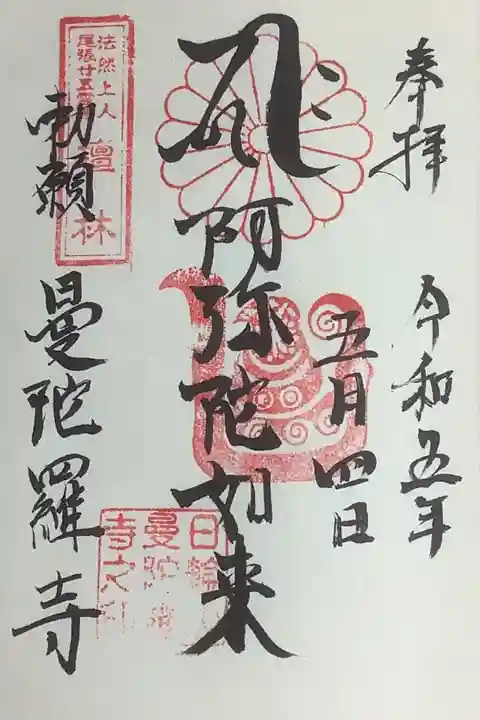 奉拝
令和五年
五月四日
阿弥陀如来
勅願
曼陀羅寺
法然上人
尾張廿五霊
檀林
日輪
曼陀羅
寺之印